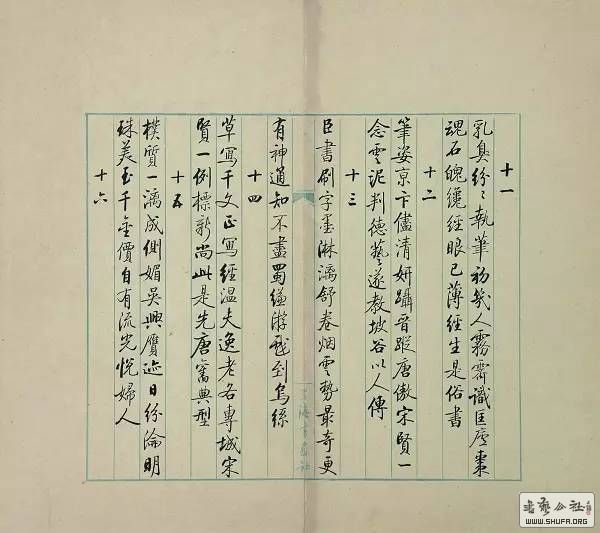 十一
乳臭紛〻執筆初幾人霧霽識匡廬棗
魂石魄纔經眼已薄經生是俗書
十二
筆姿京卞儘清妍躡晉蹤唐傲宋賢一
念雲泥判德藝遂教坡谷以人傳
十三
臣書刷字墨淋漓舒卷烟雲勢最奇更
有神通知不盡蜀縑游戲到烏絲
十四
草寫千文正寫經溫夫逸老各專城宋
賢一例標新尚此是先唐舊典型
十五
樸質一漓成側媚吳興贋迹日紛淪明
珠美玉千金價自有流光悅婦人
十六
WWW.SHUFA.ORG